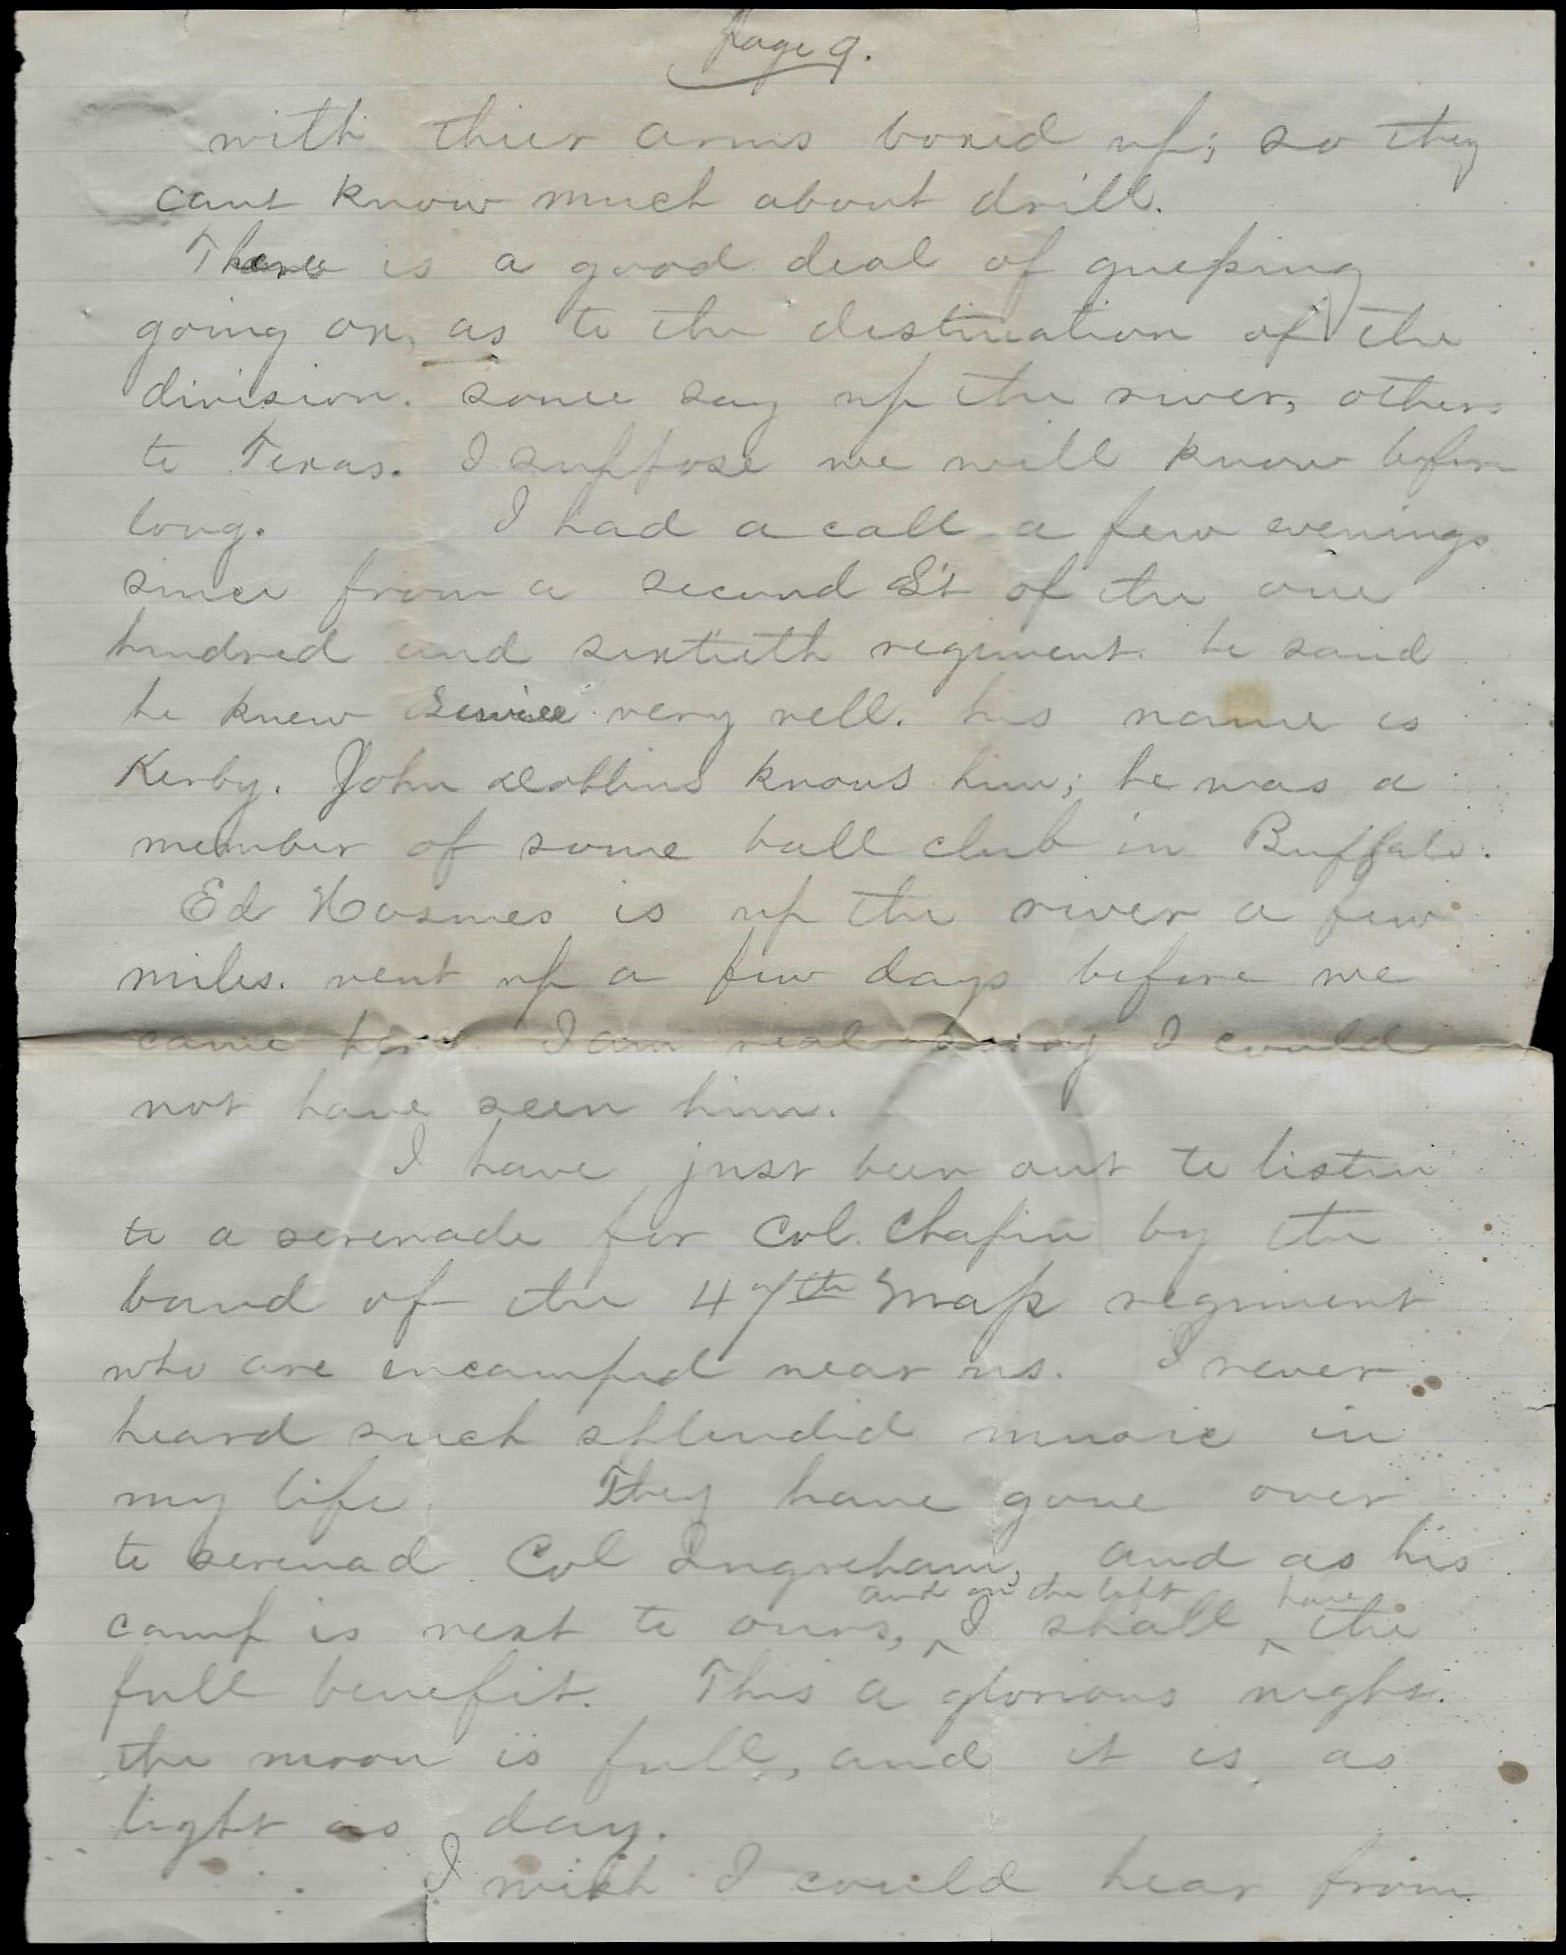 page 9.
with thier arms boxed up; so they
cant know much about drill.
There is a good deal of guessing
going on, as to the destination of the
division. some say up the river, others
to Texas. I suppose we will know before
long. I had a call a few evenings
since from a second Lt of the one
hundred and sixtieth regiment. he said
he knew very well. his name is
Kerby. John Dobbins knows him; he was a
member of some ball club in Buffalo.
Ed is up the river a few
miles. went up a few days before we
came here. I am real sorry I could
not have seen him.
I have just been out to listen
to a serenade for Col. Chapin by the
band of the 47th Mass regiment
who are encamped near us. I never
heard such splendid music in
my life. They have gone over
to serenad Col Ingreham, and as his
camp is next to ours, and on the left I shall have the
full benefit. This a glorious night.
the moon is full, and it is as
light as day.
I wish I could hear from